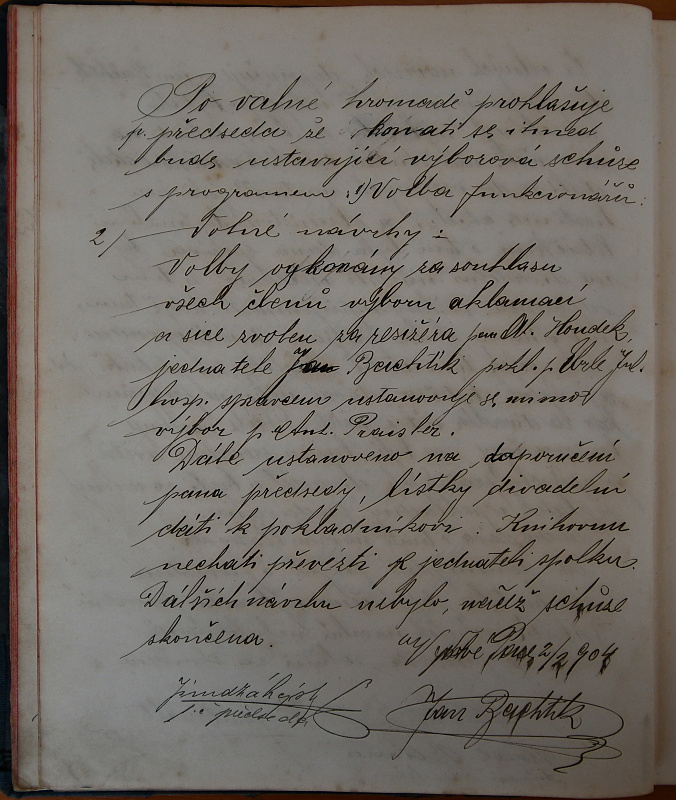 Po valné hromadě prohlašuje
p. předseda že konati se ihned
bude ustavující výborová schůze
s programem: 1) Volba funkcionářů:
2) Volné návrhy:
Volby vykonány za souhlasu
všech členů výboru aklamací
a sice zvolen za resižéra pan Al. Houdek,
jednatele Jan Bachtík pokl. p. Jul.
hosp. správcem ustanovuje se mimo
výbor p. Ant. Praisler.
Dále ustanoveno na doporučení
pana předsedy, lístky divadelní
dáti k pokladníkovi. Knihovnu
nechati převézti k jednateli spolku.
Dalších návrhu nebylo, načež schůze
skončena.
V Nové Pace 2/2 904
Jan Bachtík
předseda